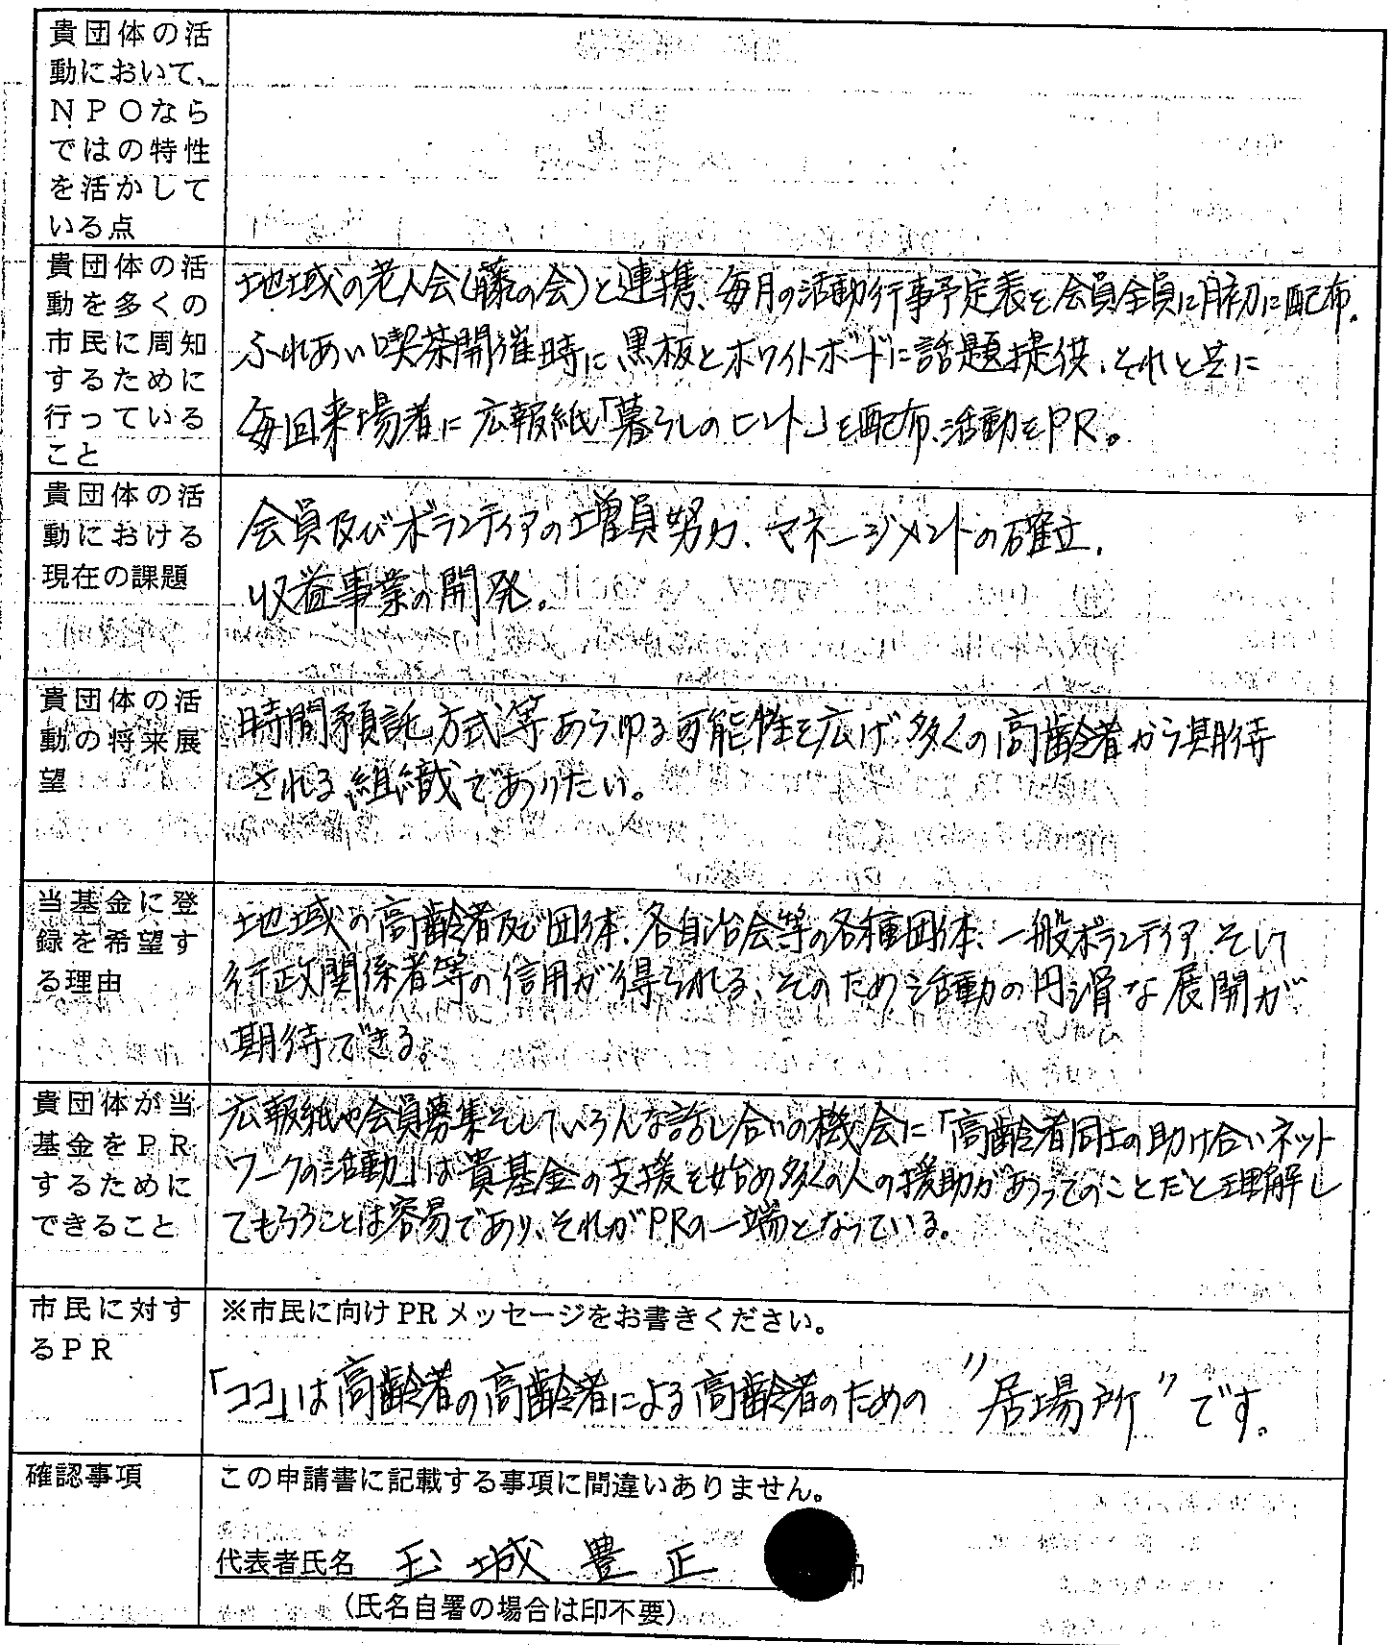 貴団体の活
動において、
NPOなら
ではの特性
を活かして
いる点
貴団体の活
動を多くの
市民に周知
するために
行っている
こと
地域の老人会(藤の会)と連携、毎月の活動行事予定表を会員全員に月初に配布。
ふれあい喫茶開催時に、黒板とホワイトボードに話題提供、それと共に
毎回来場者に広報紙「暮らしのヒント」を配布、活動をPR。
貴団体の活
動における
現在の課題
会員及びボランティアの増員努力、マネージメントの確立、
収益事業の開発。
貴団体の活
動の将来展
望
時間預託方式等あらゆる可能性を広げ多くの高齢者から期待
される組織でありたい。
当基金に登
録を希望す
る理由
地域の高齢者及び団体、各自治会等の各種団体、一般ボランティアそして
行政関係者等の信用が得られる、そのため活動の円滑な展開が
期待できる。
貴団体が当
基金をPR
するために
できること
広報紙や会員募集そしていろんな話し合いの機会に「高齢者同士の助け合いネット
ワークの活動」は貴基金の支援を始め多くの人の援助があってのことだと理解し
てもらうことは容易であり、それがPRの一端となっている。
市民に対す
るPR
※市民に向けPRメッセージをお書きください。
「ココ」は高齢者の高齢者による高齢者のための〃居場所〃です。
確認事項
この申請書に記載する事項に間違いありません。
代表者氏名 玉城豊正 印
(氏名自署の場合は印不要)